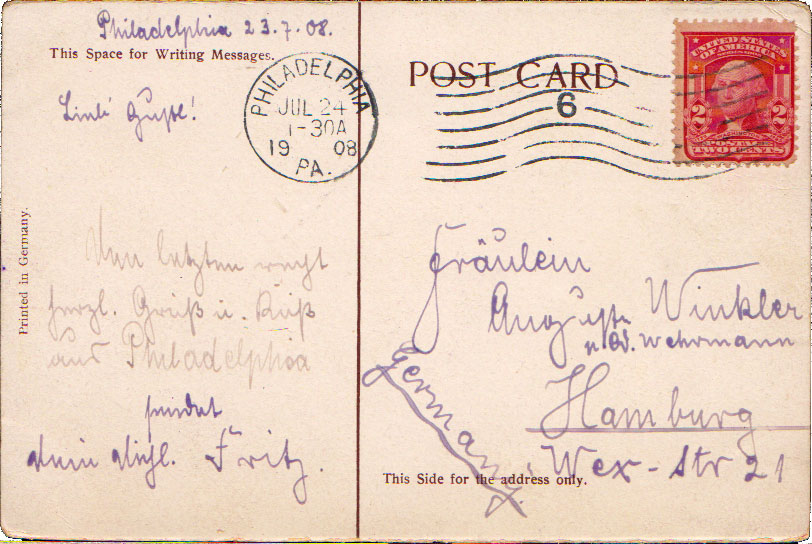 Philadelphia 23.7.08.
This Space for Writing Messages.
Liebe Gustl!
Den letzten recht
herzl. Gruß u. Kuß
aus Philadelphia
sendet
Fritz.
Printed in Germany.
PHILADELPHIA
JUL 24
1-30A
1908
PA.
POST CARD
6
UNITED STATES
OF AMERICA
2 2
POSTAGE
TWO CENTS
Fräulein
Auguste Winkler
Wehrmann
Hamburg
Wex-Str 21
Germany.
This Side for the address only.